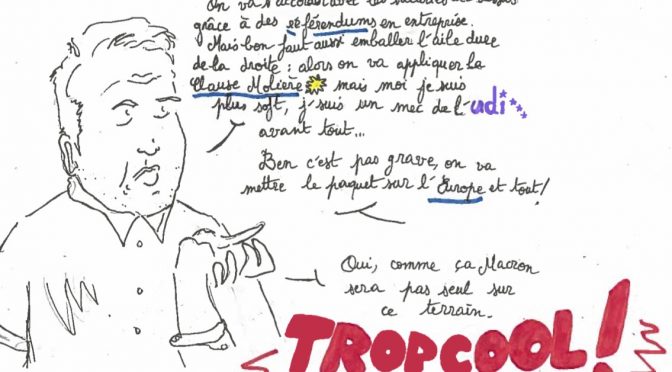 On va avec les
grâce à des référendums en entreprise.
Mais bon faut aussi emballer l'aile dure
de la droite : alors on va appliquer la
Clause Molière mais moi je suis
plus soft, j'suis un mec de l'udi
avant tout...
Ben c'est pas grave, on va
mettre le paquet sur l'Europe et tout !
Oui, comme ça Macron
sera pas seul sur
ce terrain.
TROP COOL !